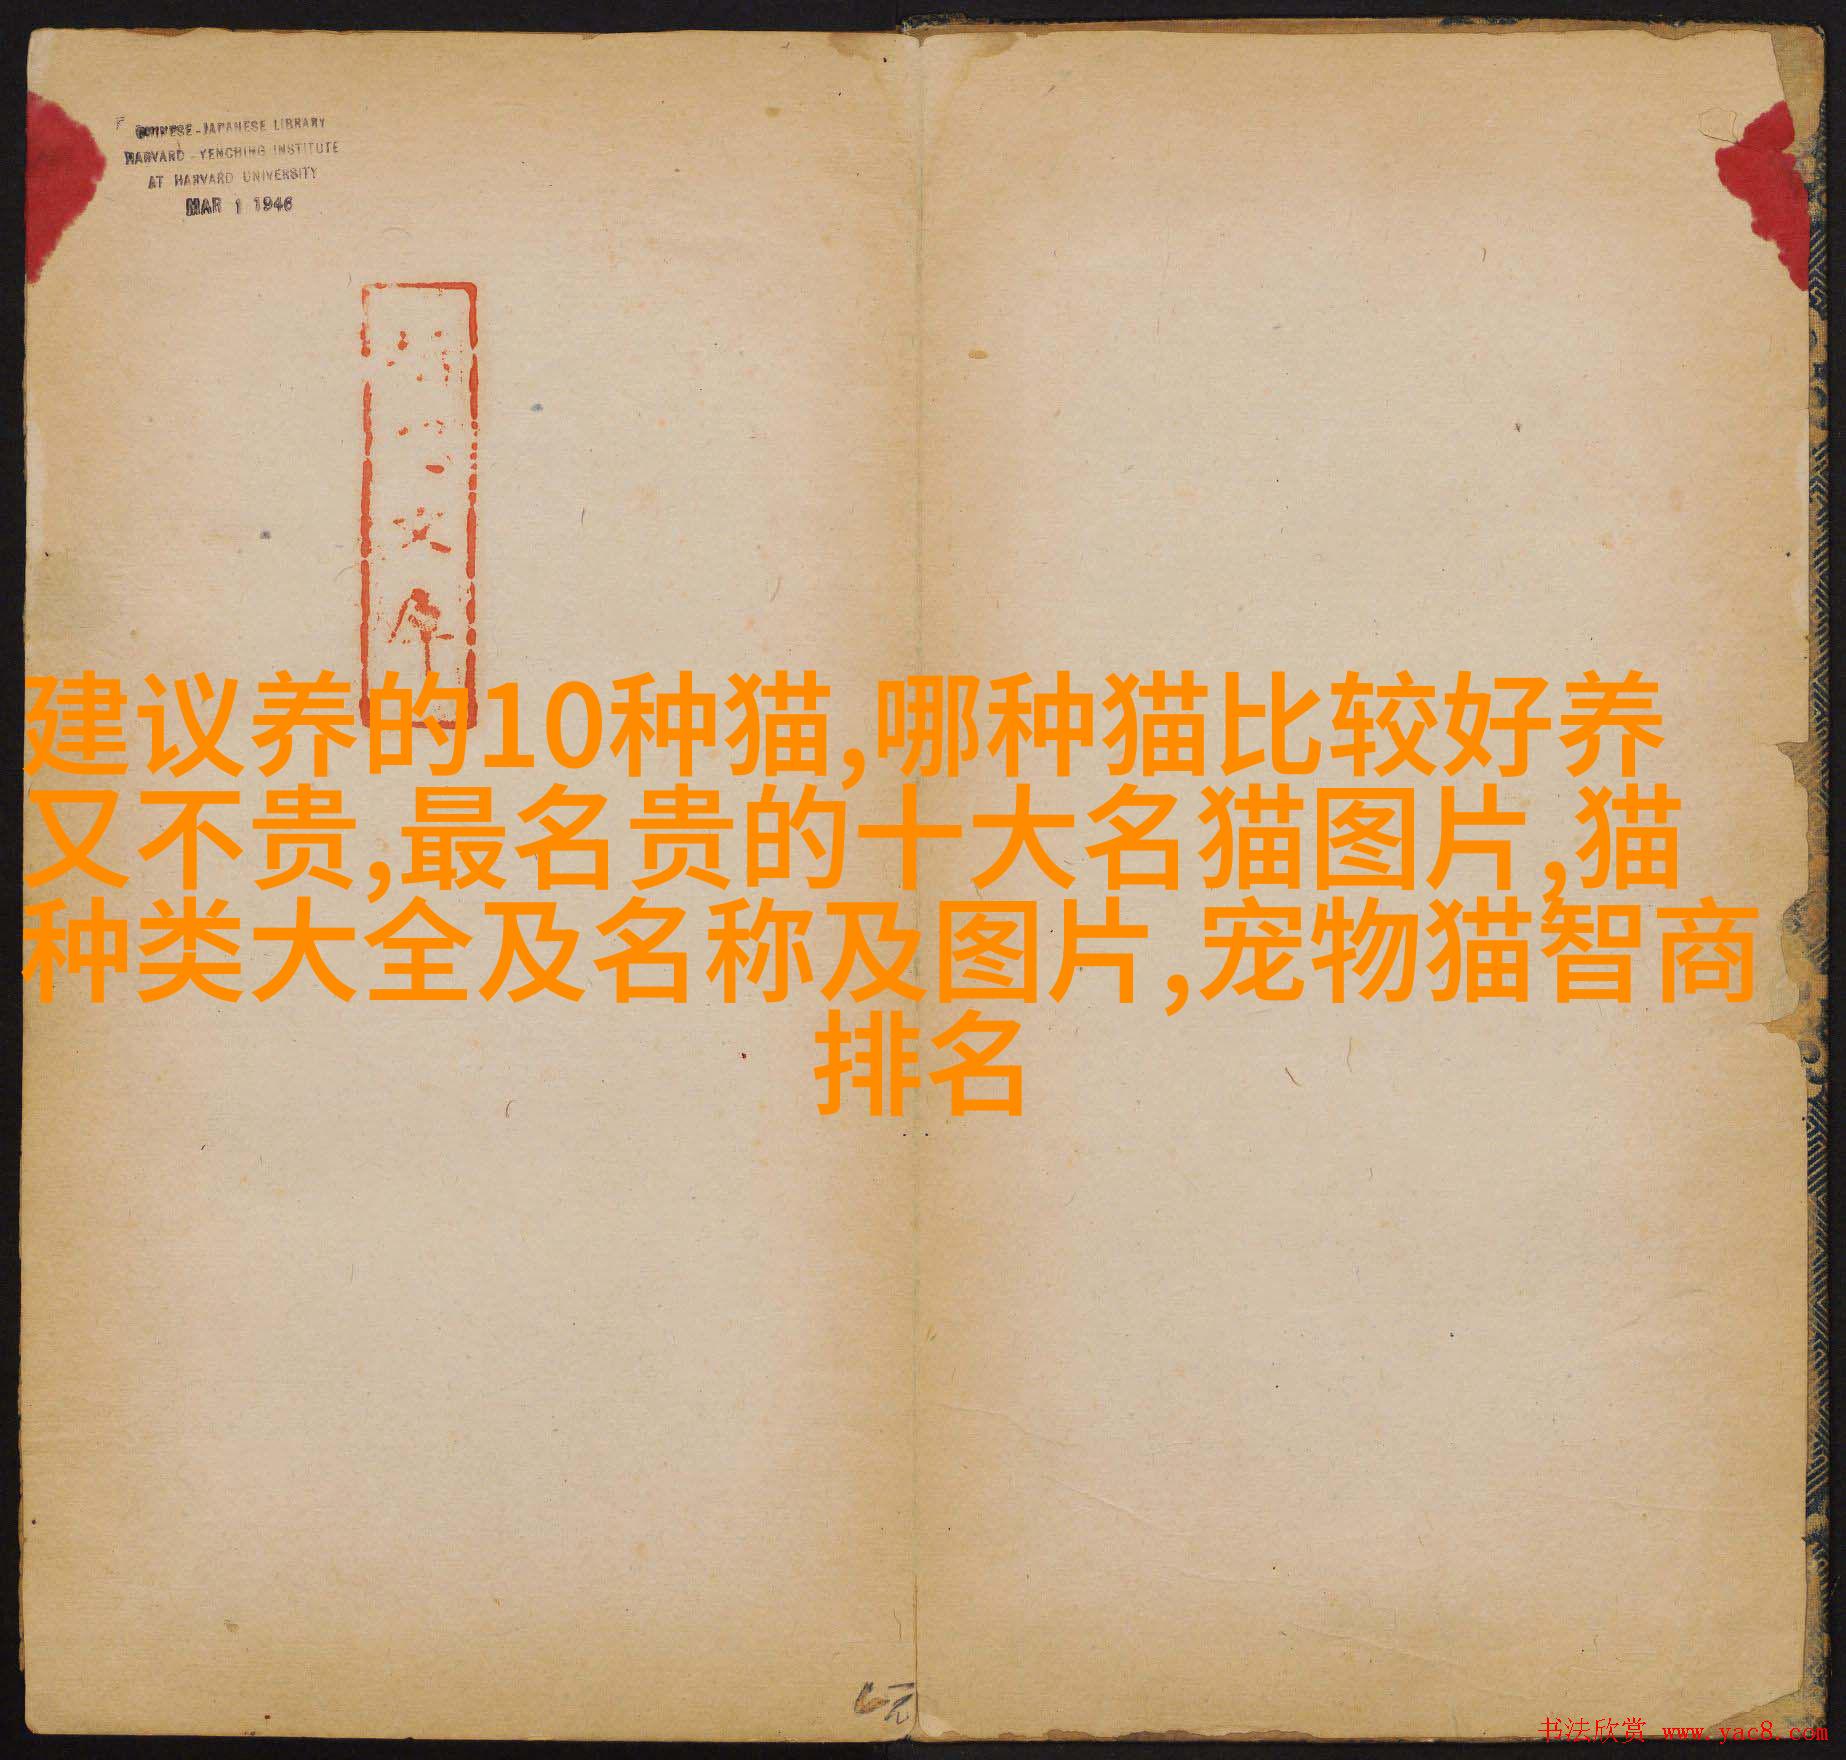 CHINESE-JAPANESE LIBRARY
HARVARD-YENCHING INSTITUTE
AT HARVARD UNIVERSITY
MAR 1 1946
文
库
建议养的10种猫,哪种猫比较好养
又不贵,最名贵的十大名猫图片,猫
种类大全及名称及图片,宠物猫智商
排名
书法欣赏 www.yac8.com